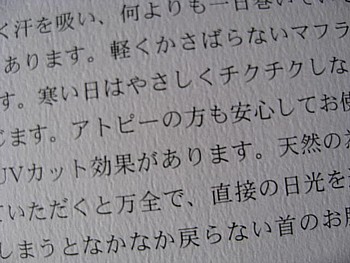 く汗を吸い、何よりも一日巻いてい
あります。軽くかさばらないマフラ
す。寒い日はやさしくチクチクしな
じます。アトピーの方も安心してお使
UVカット効果があります。天然の
ていただくと万全で、直接の日光を
しまうとなかなか戻らない首のお肌